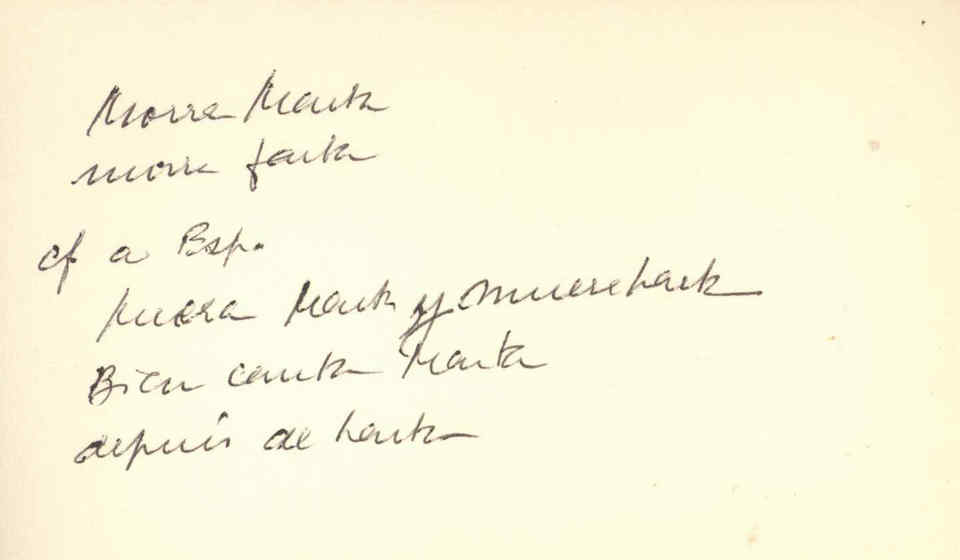 Morra Marta
morra farta
cf a Esp.
Muera Marta y muere harta
Bien canta Marta
depuis de harta